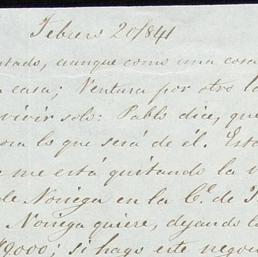 Febrero 20/841
ntado, aunque como una cosa
casa; Ventura por otro la
vivir solo: Pablo dice, que
ora lo que será de él. Est
me está quitando la v
de Noriega en la C.ª de
Noriega quiere, dejando l
$9000; si hago este nego